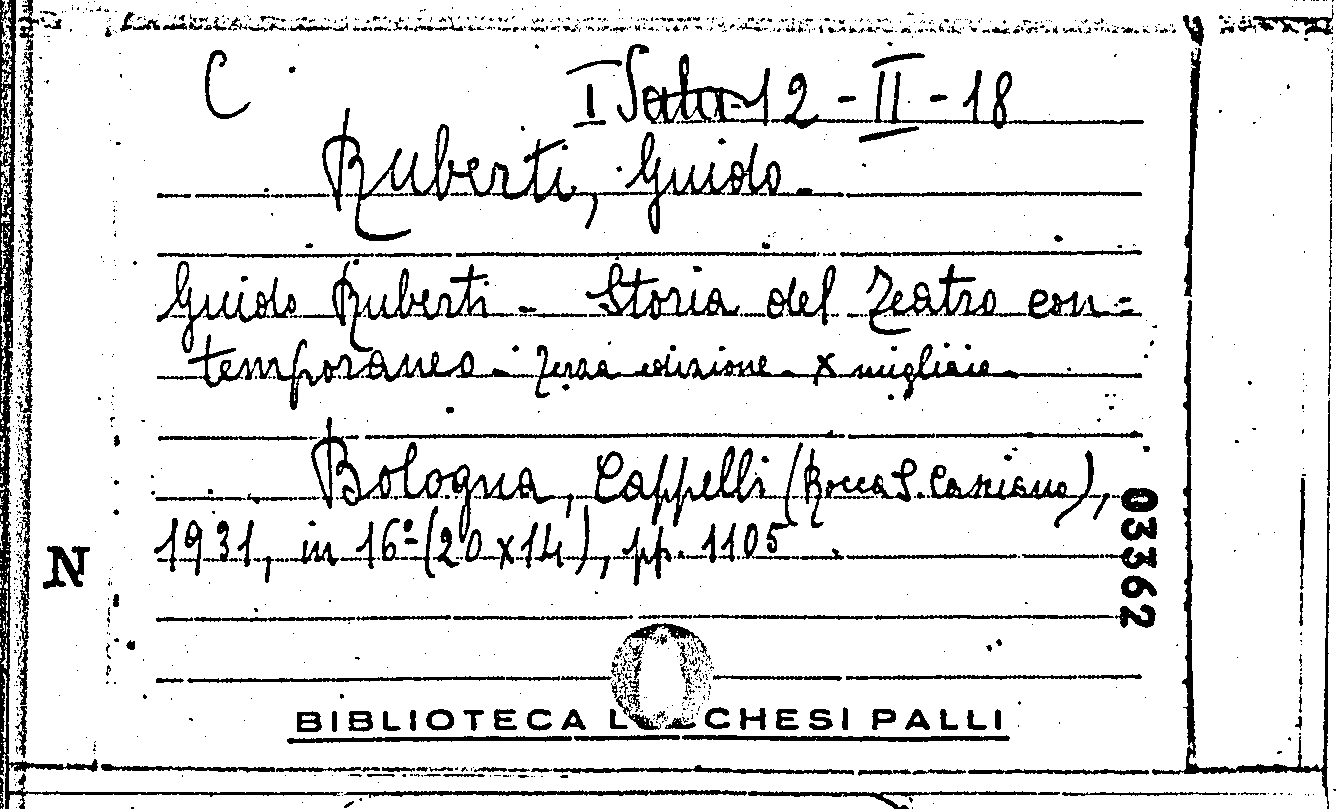 C I Sala 12 - II - 18
Ruberti, Guido.
Guido Ruberti - Storia del Teatro con=
temporaneo. Terza edizione. X migliaio.
Bologna, Cappelli (Rocca S. Casciano),
1931, in 16º (20x14), pp. 1105.
N
03362
BIBLIOTECA L CHESI PALLI